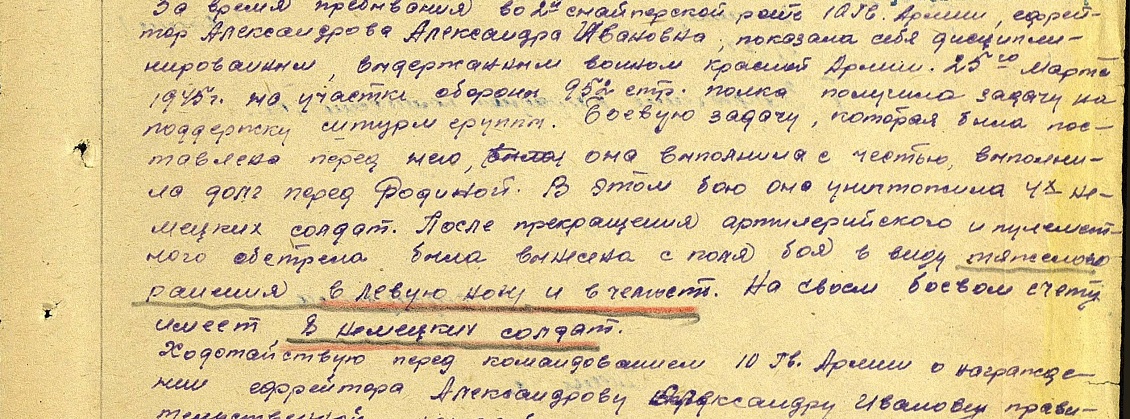 За время пребывания во 2й снайперской роте 10 Гв. Армии, ефрей-
тор Александрова Александра Ивановна, показала себя дисципли-
нированным, выдержанным воином красной Армии. 25го марта
1945г. на участке обороны 952 стр. полка получила задачу на
поддержку штурм группы. Боевую задачу, которая была пос-
тавлена перед нею, она выполнила с честью, выполни-
ла долг перед Родиной. В этом бою она уничтожила 4х не-
мецких солдат. После прекращения артилерийского и пулемет-
ного обстрела была вынесена с поля боя в виду тяжелого
ранения в левую ногу и в челюсть. На своем боевом счету
имеет 8 немецких солдат.
Ходотайствую перед командованием 10 Гв. Армии о награжде-
нии ефрейтора Александрову Александру Ивановну прави-
тельственной